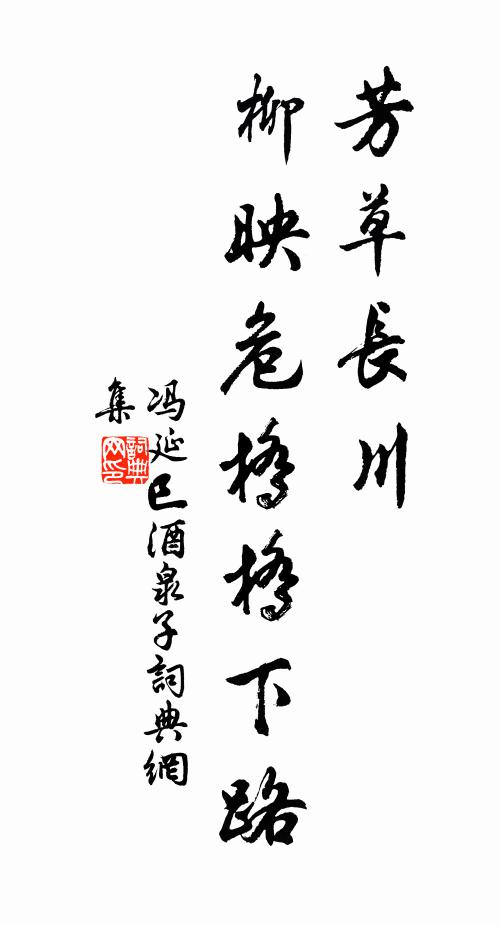 芳草長川
柳映危橋橋下路
冯延巳酒泉子詞典網
集
詞典網印